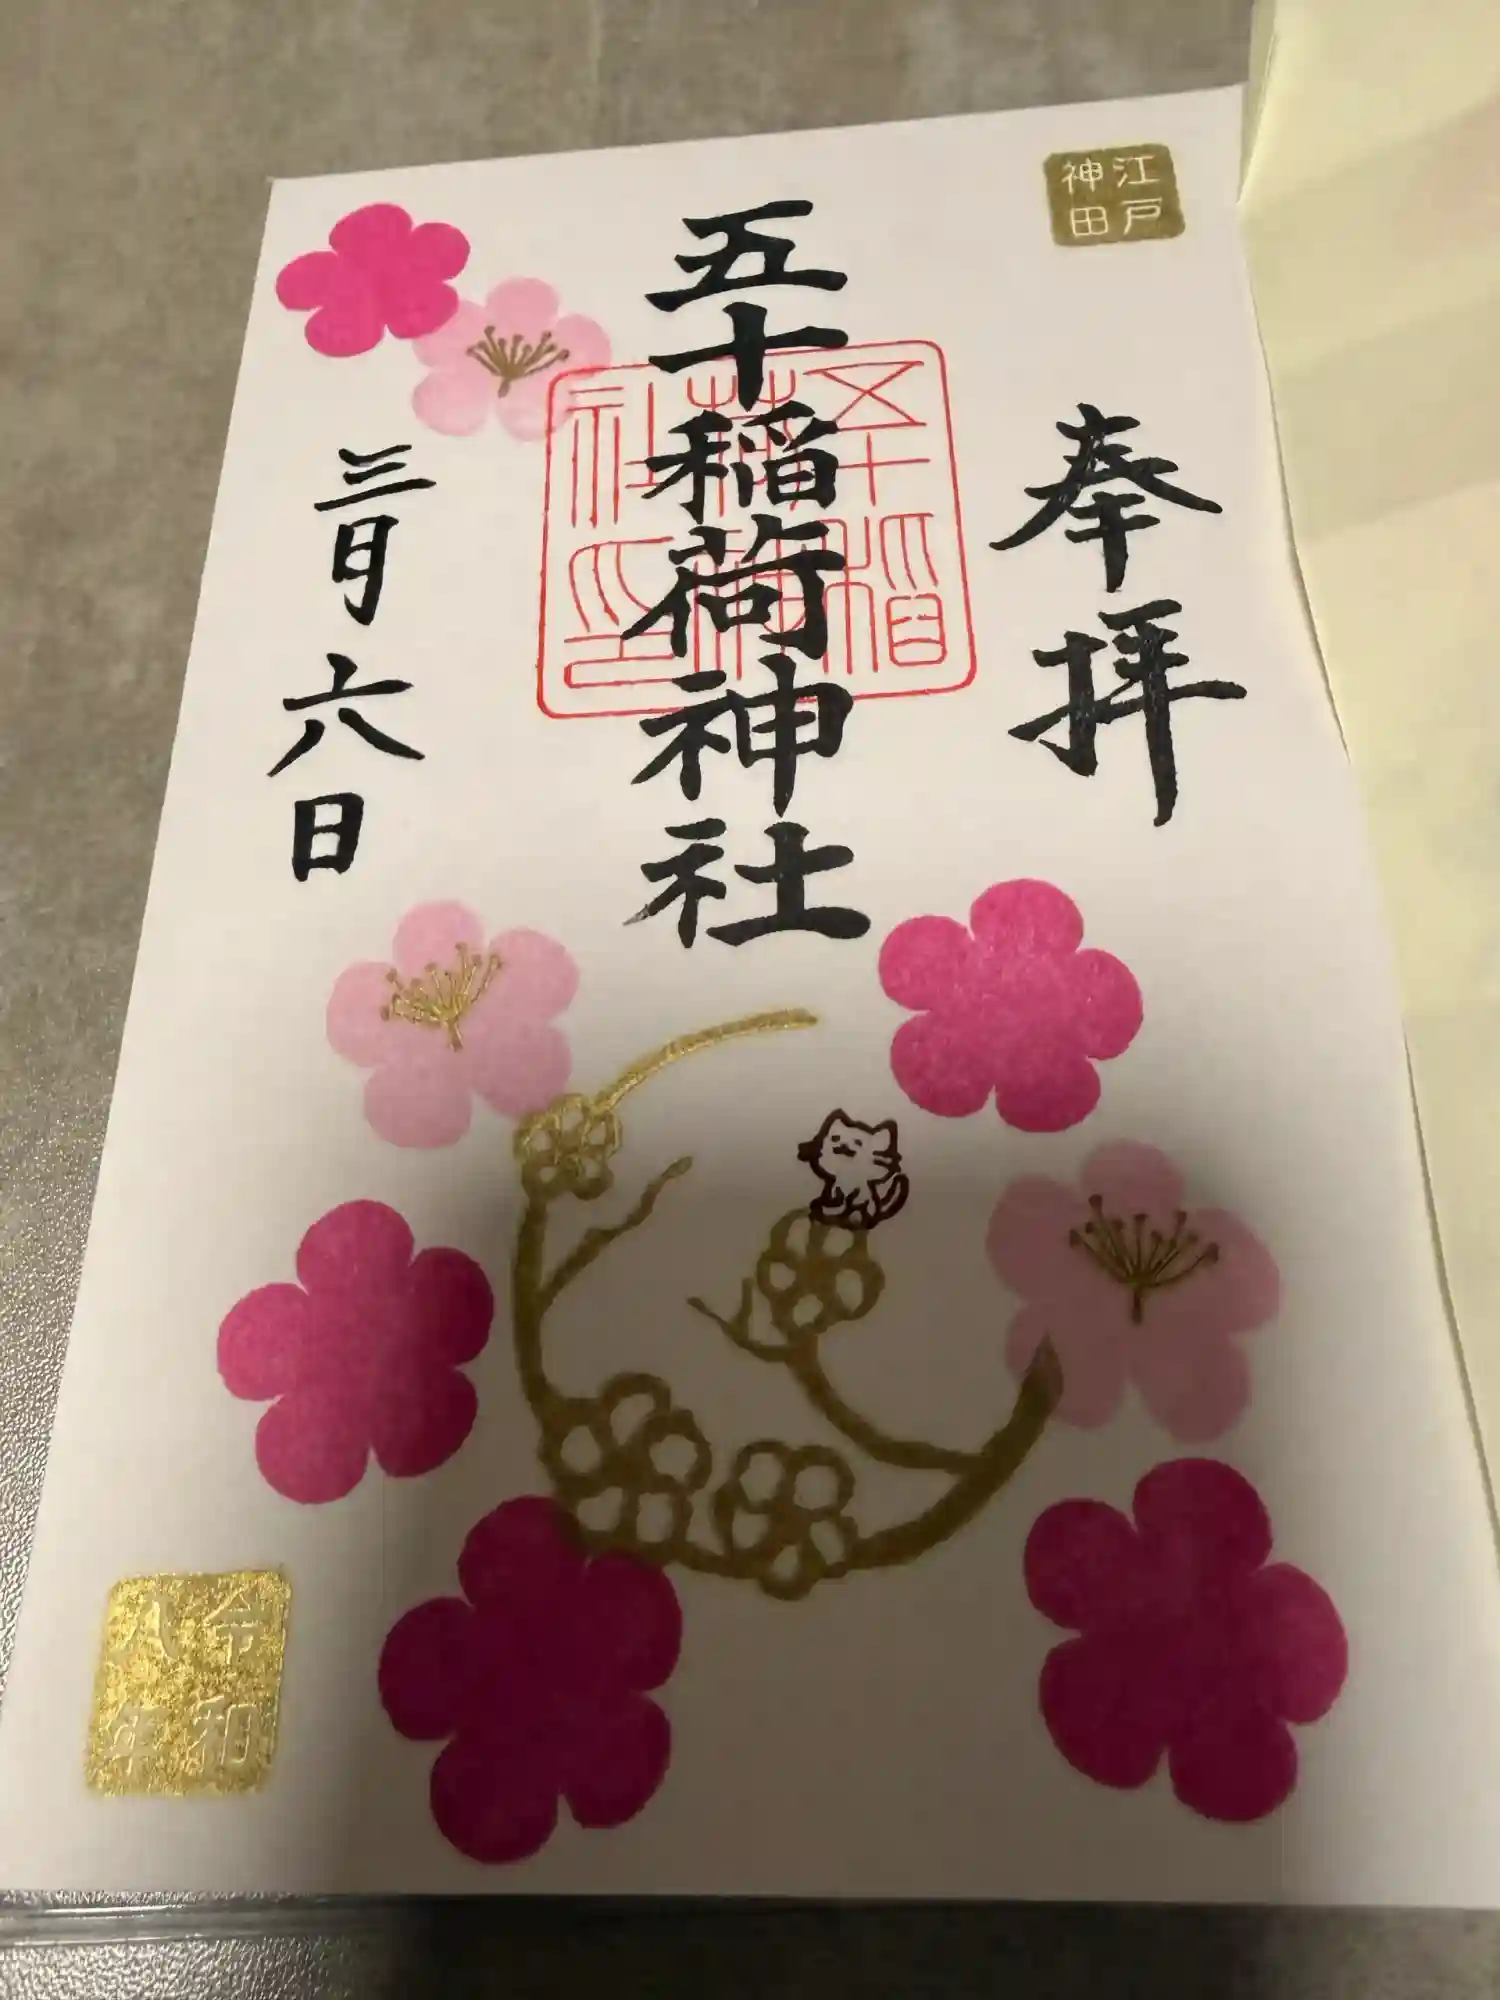 江戸
神田
奉拝
五十稲荷神社
五十稲
荷神
社印
三月六日
令和
八年